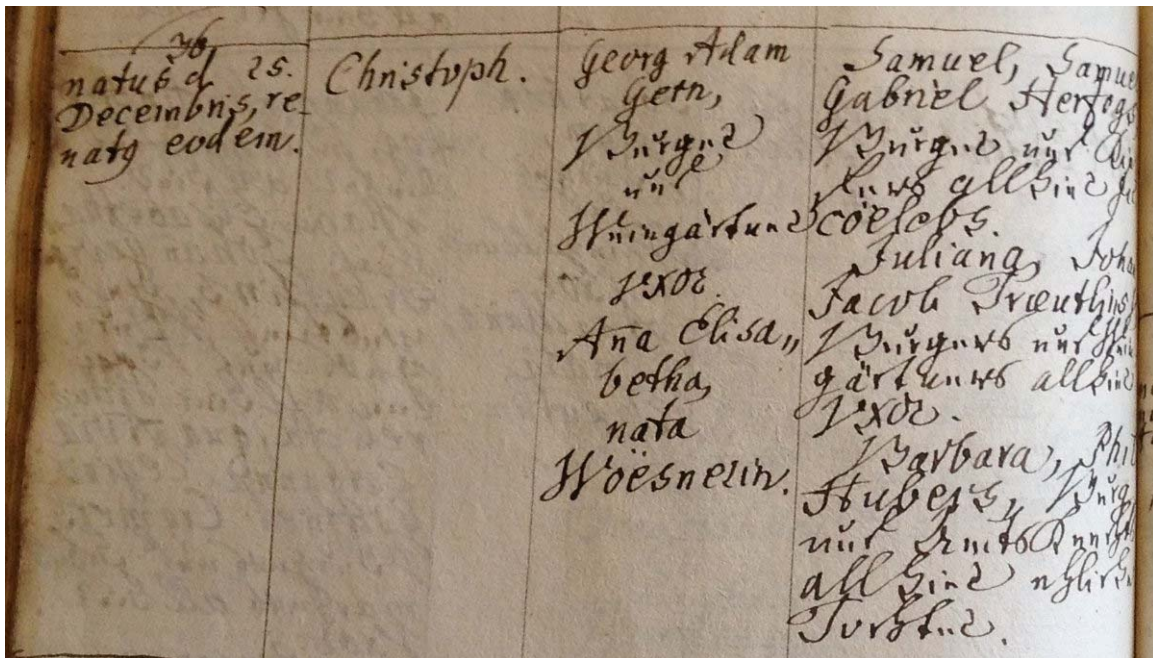 76.
natus d. 25.
Decembris, re-
natq eodem.
Christoph.
Georg Adam
Gern,
Burger
und
Weingärtner
uxor
Ana Elisa„
betha,
nata
Wöësnerin.
Samuel, Samuel
Gabriel Hertzogs
Burger und
allhier
coelebs.
Juliana, Joha
Jacob
Burgers und Wein
gärtners allhier
uxor.
Barbara, Phil
Hubers, Burg
und Amts Knecht
allhier ehliche
Tochter.